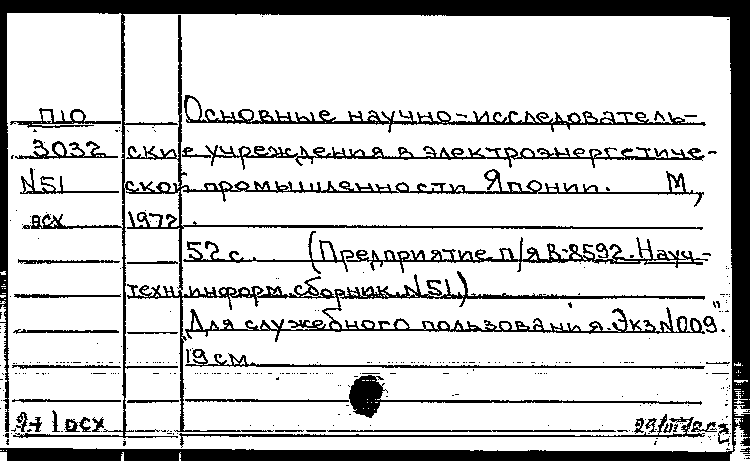 П10 Основные научно-исследователь-
3032 ские учреждения в электроэнергетиче-
N51 ской промышленности Японии. М.,
осх 1972.
52 с. (Предприятие п/я В-8592. Науч-
техн. информ. сборник. N51.)
"Для служебного пользования. Экз N009".
19 см.
осх